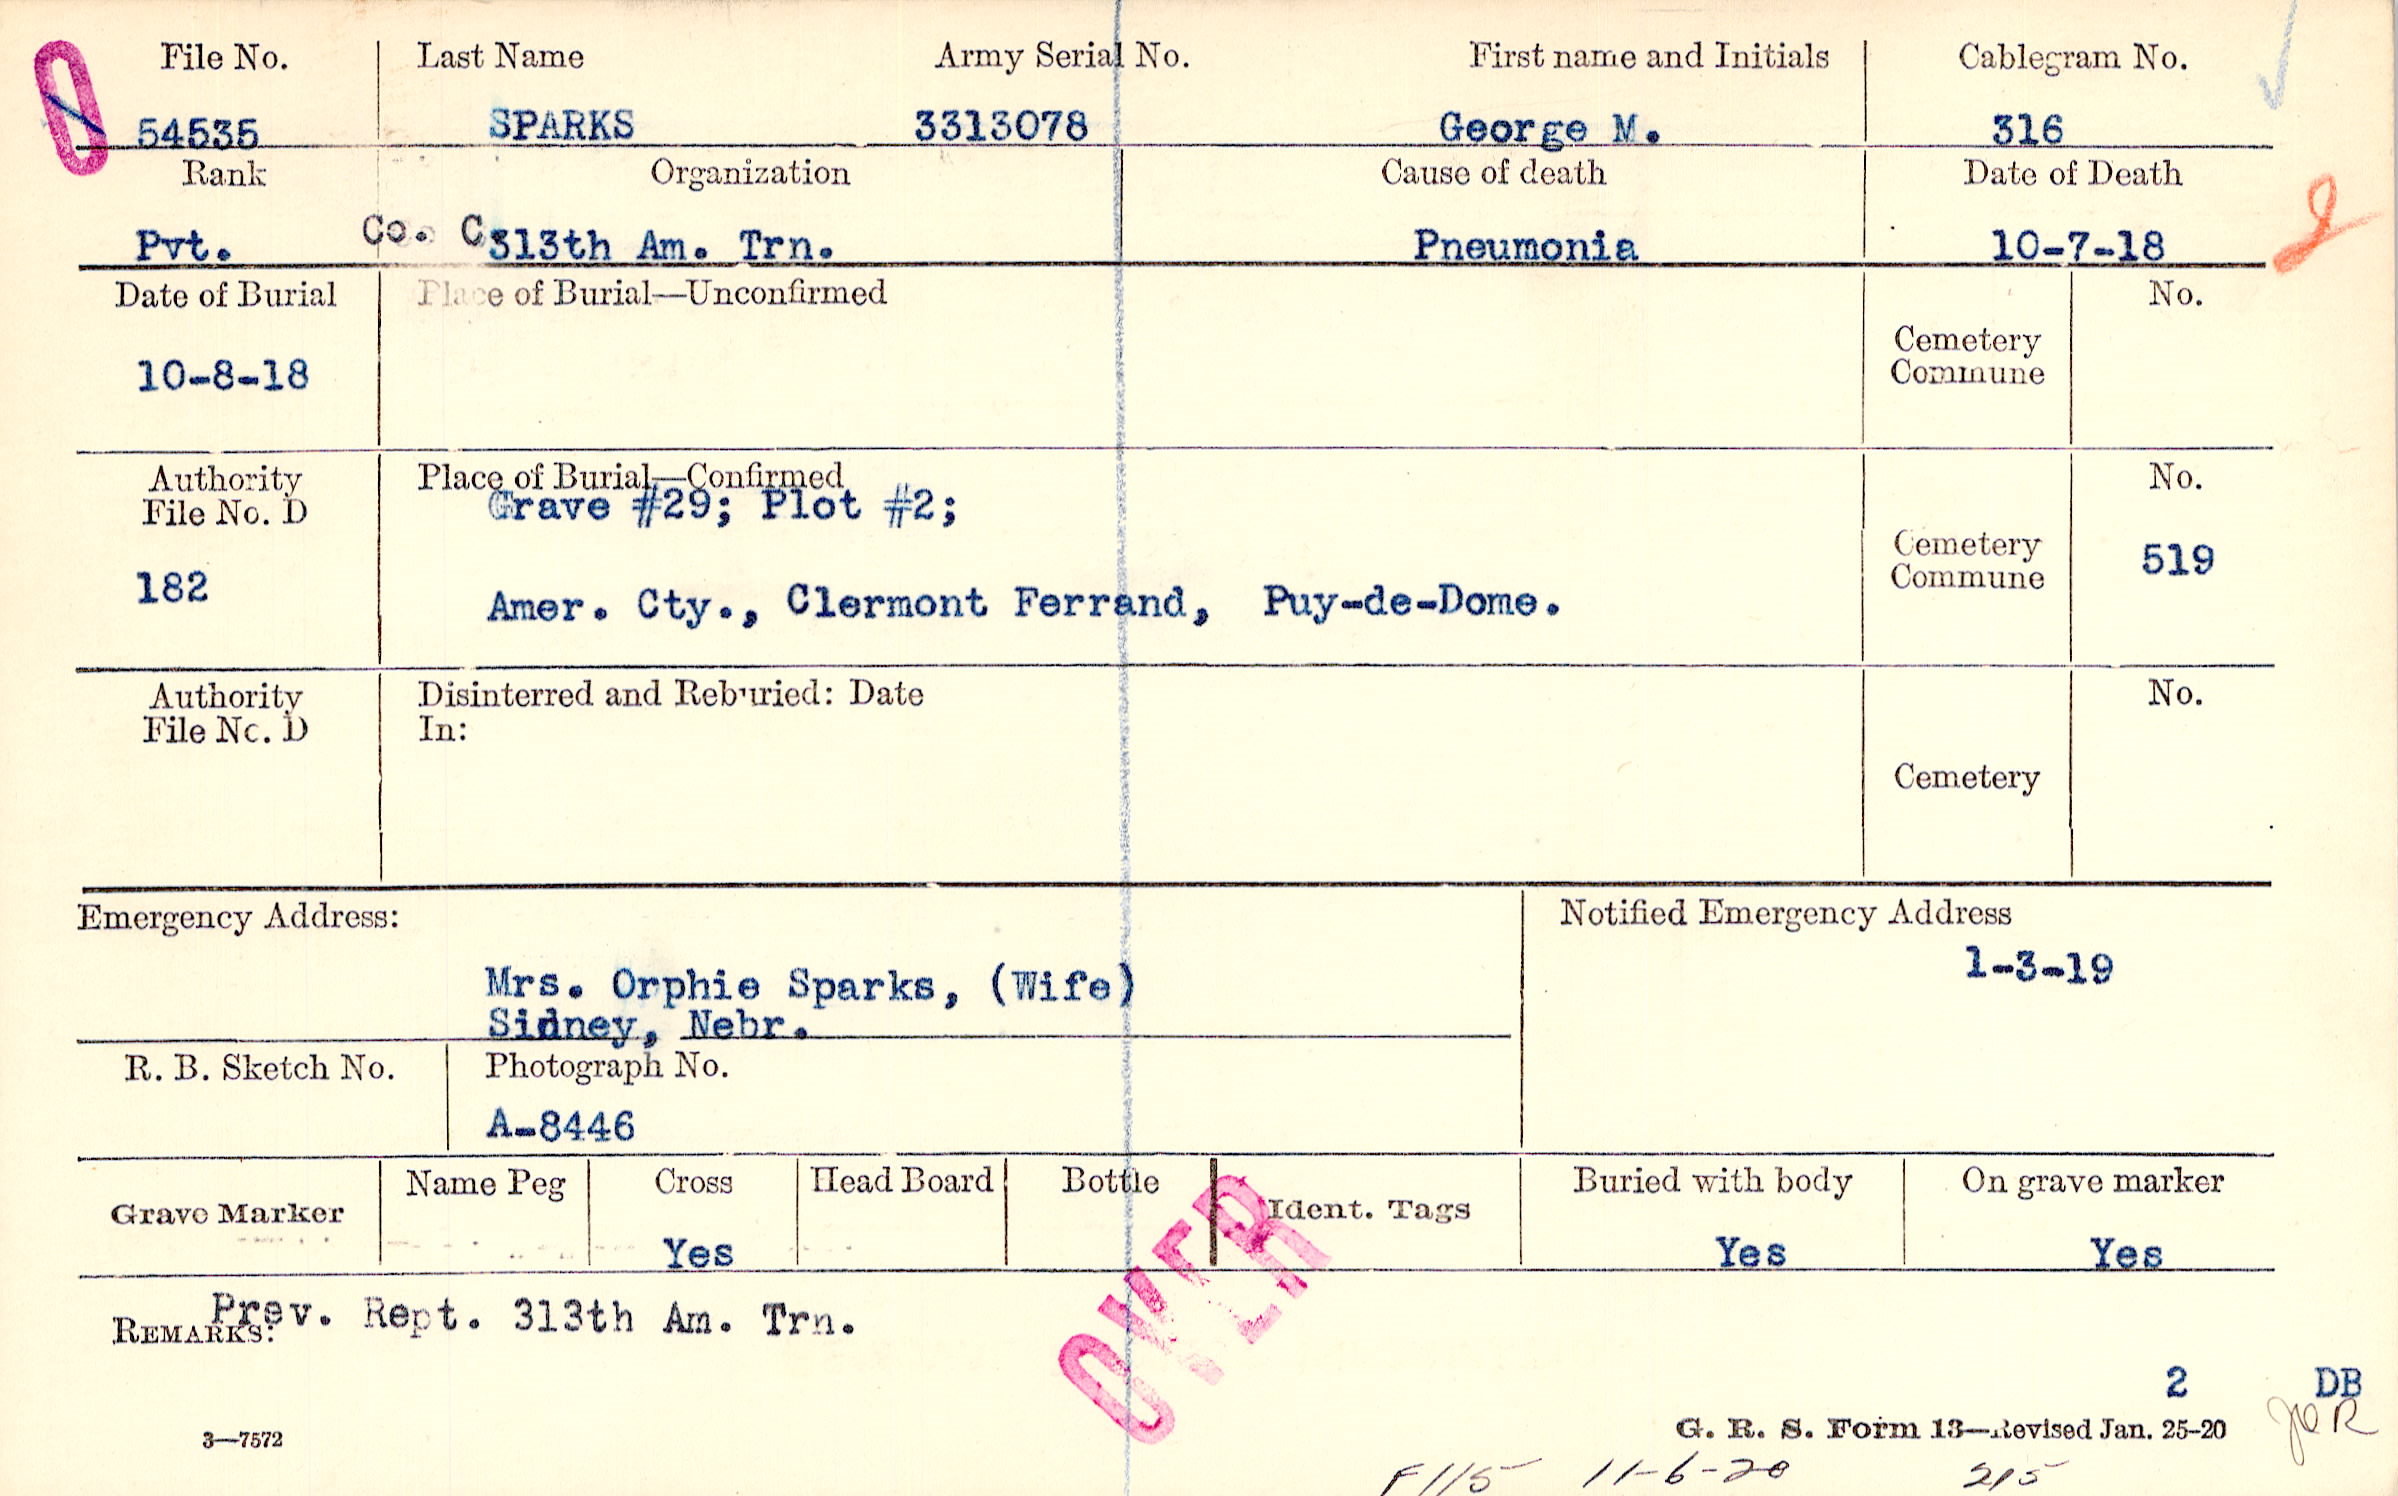 File No. Last Name Army Serial No. First name and Initials Cablegram No.
54535 SPARKS 3313078 George M. 316
Rank Organization Cause of death Date of Death
Pvt. Co. C. 313th Am. Trn. Pneumonia 10-7-18
Date of Burial Place of Burial—Unconfirmed No.
10-8-18
Cemetery
Commune
Authority Place of Burial—Confirmed No.
File No. D Grave #29; Plot #2;
182 Amer. Cty., Clermont Ferrand, Puy-de-Dome.
Cemetery
Commune 519
Authority Disinterred and Reburied: Date No.
File No. D In:
Cemetery
Emergency Address: Notified Emergency Address
1-3-19
Mrs. Orphie Sparks, (Wife)
Sidney, Nebr.
R. B. Sketch No. Photograph No.
A-8446
Grave Marker Name Peg Cross Head Board Bottle Ident. Tags Buried with body On grave marker
Yes Yes Yes
OVER
REMARKS: Prev. Rept. 313th Am. Trn.
2 DB
3—7572 G. R. S. Form 13—Revised Jan. 25-20
F115 11-6-20 215